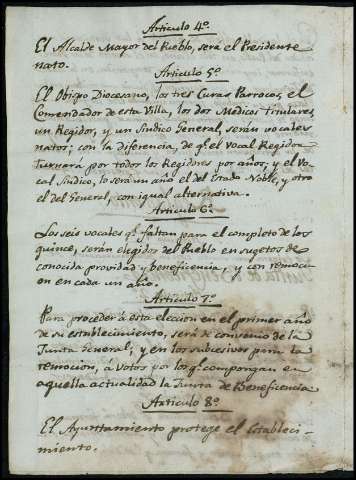 Articulo 4º
El Alcalde Mayor del Pueblo, será el Presidente
nato.
Articulo 5º
El Obispo Diocesano, los tres Curas Parrocos, el
Comendador de esta Villa, los dos Medicos titulares,
un Regidor, y un Sindico General, serán vocales
natos; con la diferencia, de qe. el Vocal Regidor
turnará por todos los Regidores por años; y el Vo-
cal Sindico, lo será un año el del Estado Noble, y otro
el del General, con igual alternativa.
Articulo 6º
Los seis vocales qe. faltan para el completo de los
quince, serán elegidos del Pueblo en sugetos de
conocida providad y beneficencia, y con remoci-
on en cada un año.
Articulo 7º
Para proceder á esta eleccion en el primer año
de su establecimiento, será de convenio de la
Junta General; y en los subcesivos para la
remocion, á votos por los qe. compongan en
aquella actualidad la Junta de Beneficencia
Articulo 8º
El Ayuntamiento protege el Estableci-
miento.